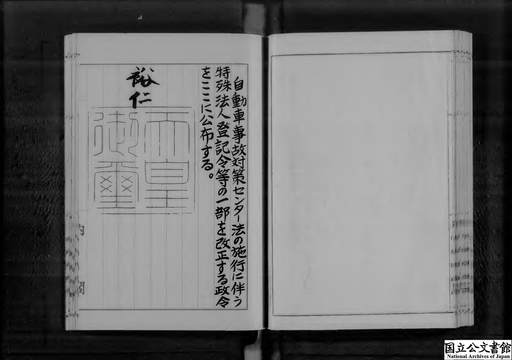 自動車事故対策センター法の施行に伴う
特殊法人登記令等の一部を改正する政令
をここに公布する。
裕仁
天皇
御璽
国立公文書館
National Archives of Japan